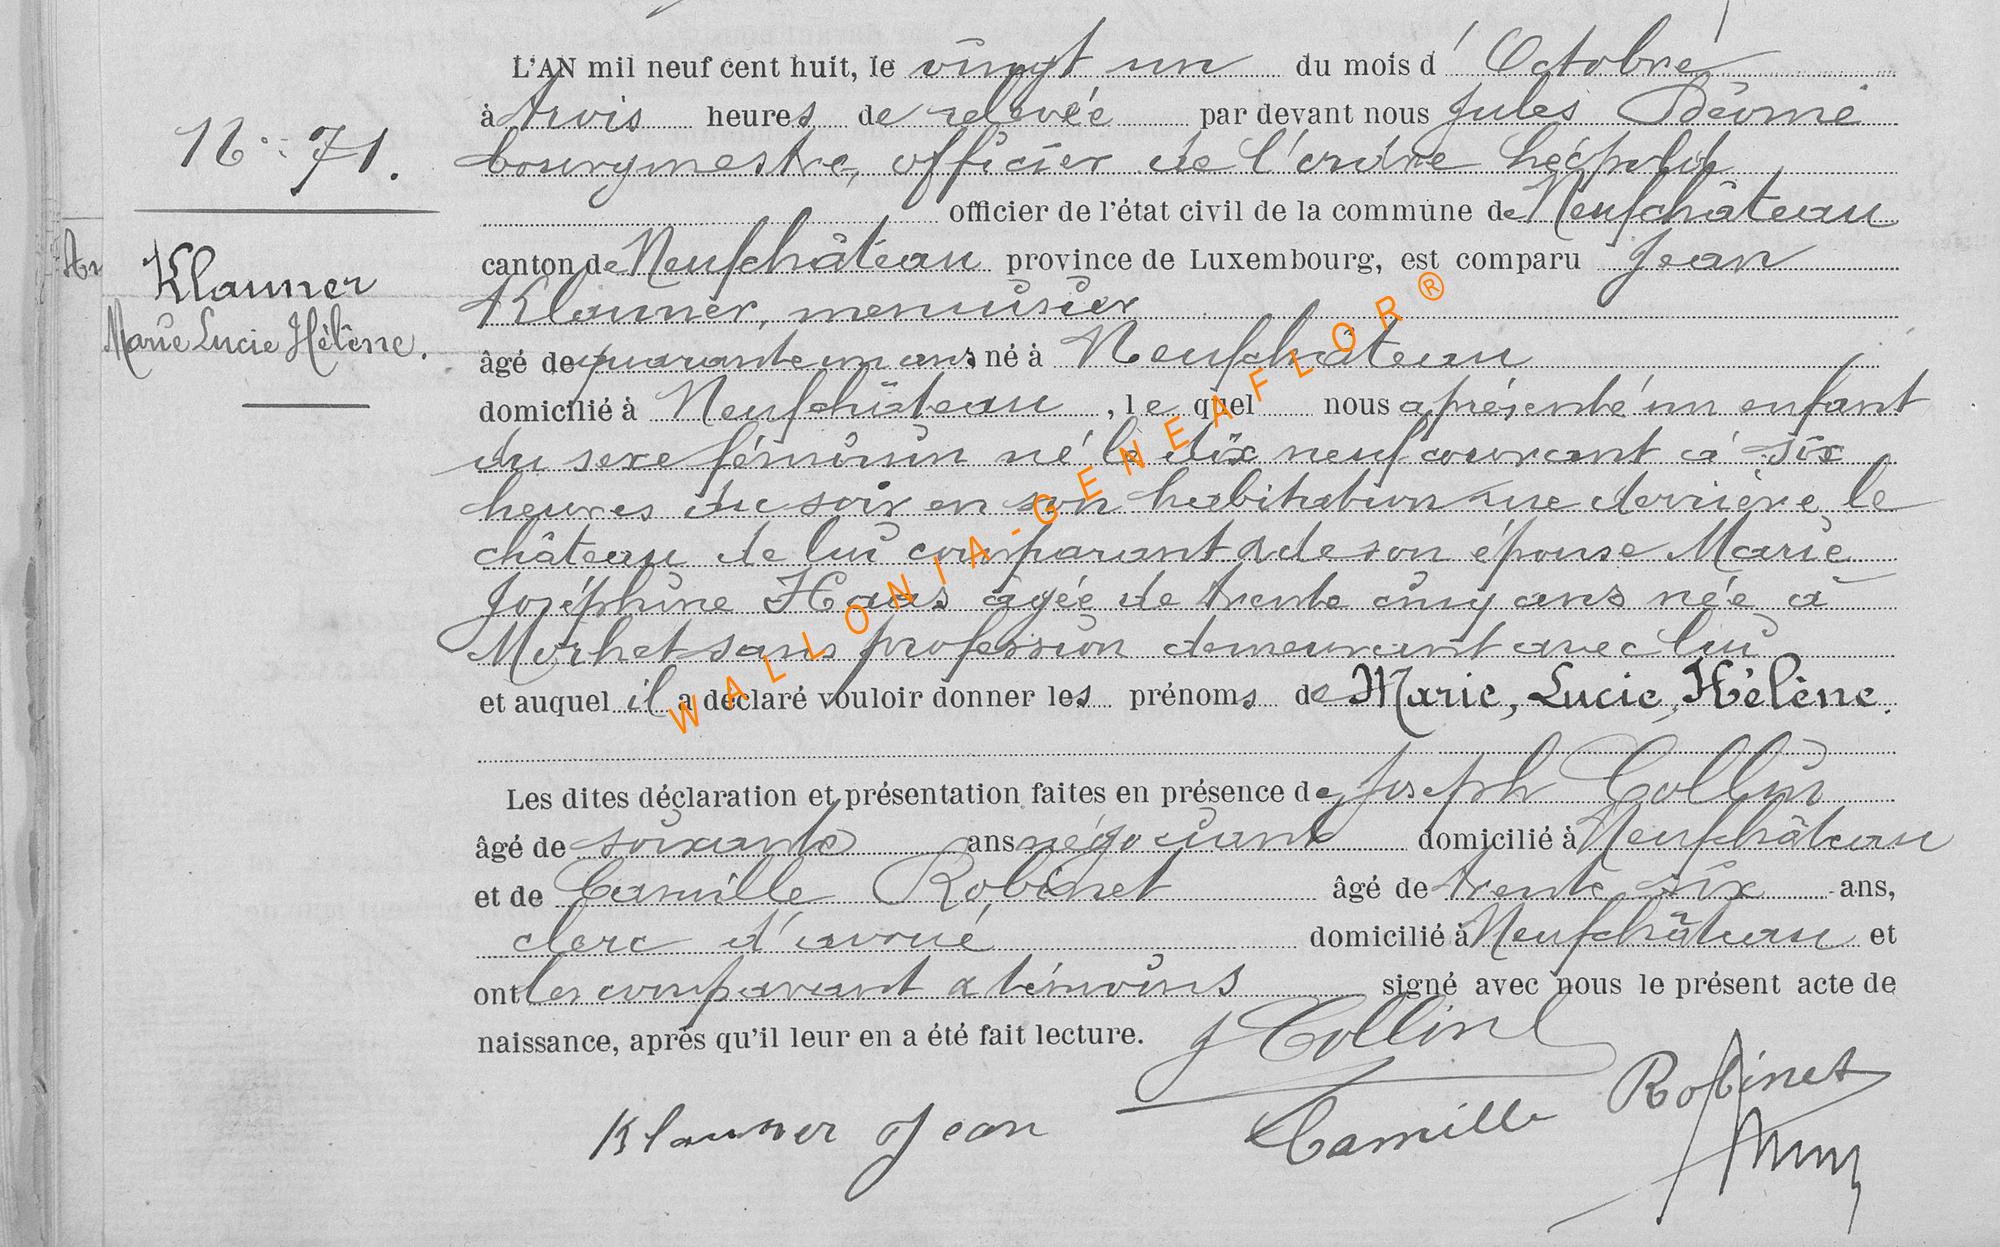 L'AN mil neuf cent huit, le vingt un du mois d' Octobre
à trois heures de relevée par devant nous Jules
bourgmestre, officier de l'ordre Léopold
officier de l'état civil de la commune de Neufchâteau
N° 71.
Klauner
Marie Lucie Hélène.
canton de Neufchâteau province de Luxembourg, est comparu Jean
Klauner, menuisier
âgé de quarante un ans né à Neufchâteau
domicilié à Neufchâteau, le quel nous a présenté un enfant
du sexe féminin né le dix neuf courant à six
heures du soir en son habitation rue derrière le
château de lui comparant & de son épouse Marie
Joséphine Haas âgée de trente cinq ans née à
Morhet sans profession demeurant avec lui
et auquel il a déclaré vouloir donner les prénoms de Marie, Lucie, Hélène.
Les dites déclaration et présentation faites en présence de Joseph Collin
âgé de soixante ans négociant domicilié à Neufchâteau
et de Camille Robinet âgé de trente six ans,
clerc d'avoué domicilié à Neufchâteau et
ont les comparant & témoins signé avec nous le présent acte de
naissance, après qu'il leur en a été fait lecture.
J Collin
Klauner Jean
Camille Robinet
WALLONIA-GENEAFLOR®